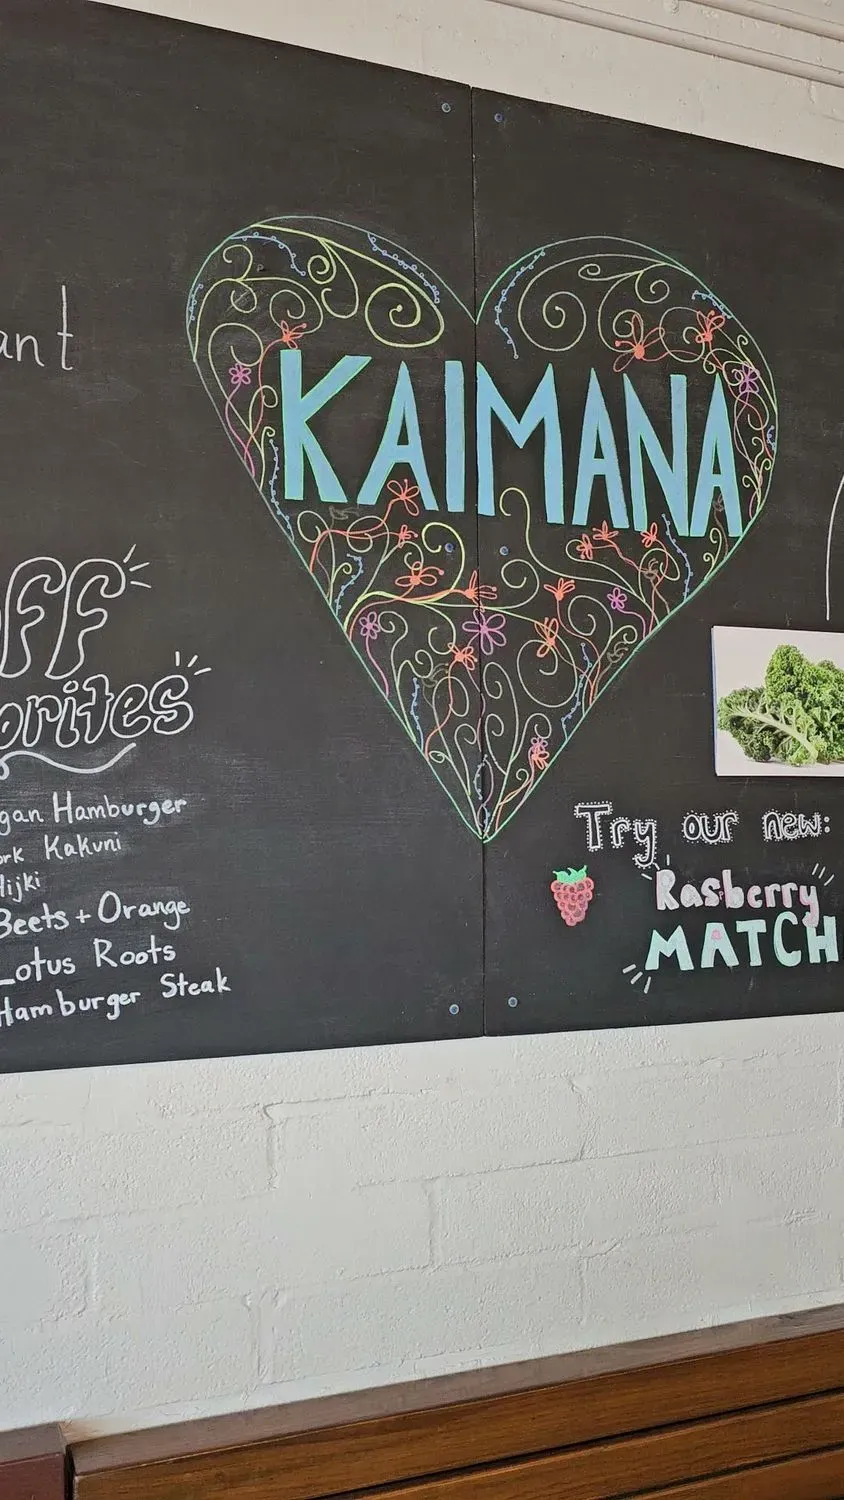 ant
KAIMANA
FF
orites
gan Hamburger
ork Kakuni
Hijki
Beets + Orange
Lotus Roots
Hamburger Steak
Try our new:
Rasberry
MATCH